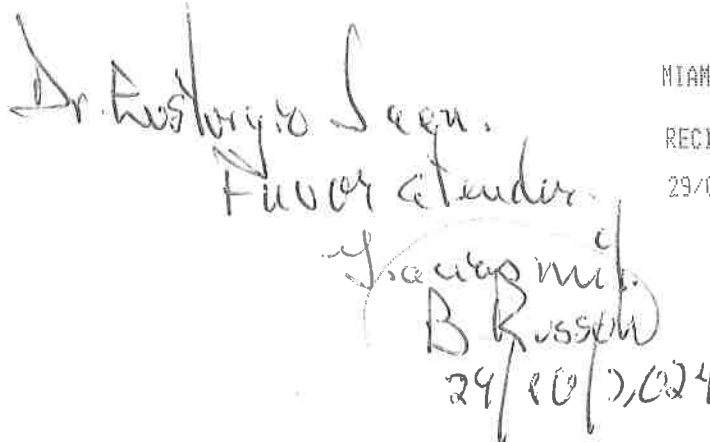 Dr. Eustorgio Saen.
Favor atender.
Gracias mil.
B Russell
MIAM
RECI
29/0